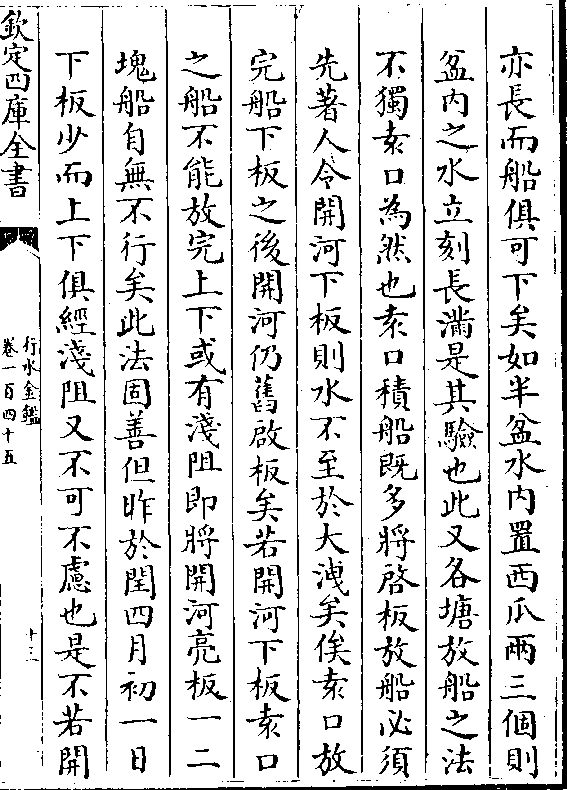 亦長而船俱可下矣如半盆水内置西瓜兩三個則
盆内之水立刻長滿是其驗也此又各塘放船之法
不獨袁口為然也袁口積船既多將啓板放船必須
先著人令開河下板則水不至於大洩矣俟袁口放
完船下板之後開河仍舊啟板矣若開河下板袁口
之船不能放完上下或有淺阻即將開河亮板一二
塊船自無不行矣此法固善但昨於閏四月初一日
下板少而上下俱經淺阻又不可不慮也是不若開
欽定四庫全書
行水金鑑
卷一百四十五
十三